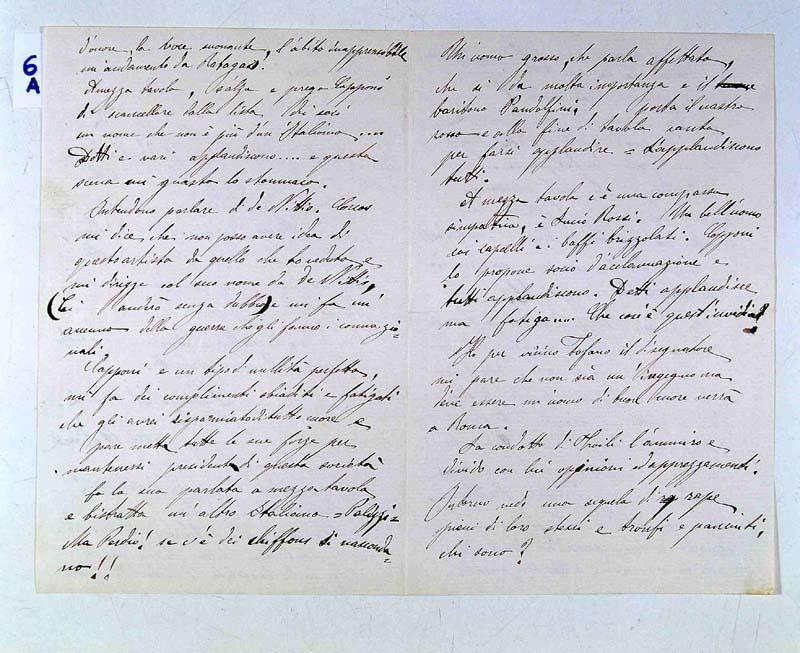 6
A
d'onore, la voce suonante, l'abito inapprensibile
un andamento da
A mezza tavola, s'alza e prega Capponi
di scancellare dalla lista dei soci
un nome che non è più d'un Italiano....
Detti e vari applaudiscono.... e questa
scena mi guasta lo stommaco.
Intendono parlare di de Nittis.
mi dice, che non posso avere idea di
questo artista da quello che ho veduto e
mi dirigge col suo nome da de Nittis,
(Ci andrò senza dubbio) e mi fa un
accenno della guerra che gli fanno i connazio-
nali.
Capponi è un tipo di nullità perfetta,
mi fa dei complimenti sbiaditi e fatigati
che gli avrei risparmiato di tutto cuore e
pare metta tutte le sue forze per
mantenersi presidente di questa società
fa la sua parlata a mezza tavola
e bistratta un'altro Italiano = Palizzi =
Ma Perdio! se v'è dei chiffons si nasconda-
no!!
Un uomo grosso, che parla affettato,
che si da molta importanza e il
baritono Pandolfini, porta il nastro
rosso e alla fine di tavola canta
per farsi applaudire = L'applaudiscono
tutti.
A mezza tavola c'è una comparsa
simpatica, è Lucio Rossi. Un bell'uomo
coi capelli e i baffi brizzolati. Capponi
lo propone socio d'acclamazione e
tutti applaudiscono. Detti applaudisce
ma fatiga.... Che cos'è quest'invidia?
Ho per vicino Tofano il disegnatore
mi pare che non sia un'ingegno ma
deve essere un uomo di buon cuore verrà
a Roma.
La condotta di l'ammiro e
divido con lui opinioni d'apprezzamenti.
Intorno vedo una sequela di rape
pieni di loro stessi e tronfi e pasciuti,
chi sono?